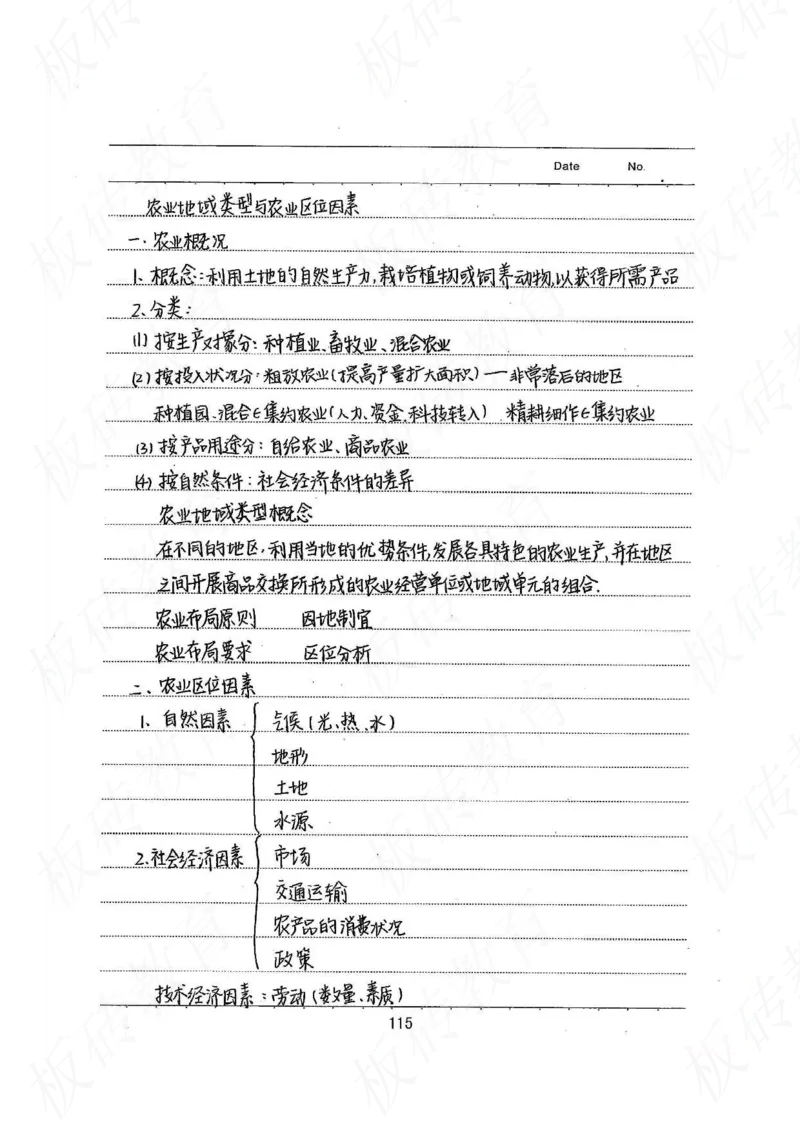 Date No.
农业地域类型与农业区位因素
一.农业概况
1、概念:利用土地的自然生产力,栽培植物或饲养动物,以获得所需产品
2、分类:
(1)按生产对象分:种植业、畜牧业、混合农业
(2)按投入状况分:粗放农业(提高产量扩大面积)—非常落后的地区
种植园、混合∈集约农业(人力、资金、科技转入) 精耕细作∈集约农业
(3)按产品用途分:自给农业、商品农业
(4)按自然条件:社会经济条件的差异
农业地域类型概念
在不同的地区,利用当地的优势条件,发展各具特色的农业生产,并在地区
之间开展商品交换所形成的农业经营单位或地域单元的组合.
农业布局原则 因地制宜
农业布局要求 区位分析
二、农业区位因素
1、自然因素 气候(光、热、水)
地形
土地
水源
2.社会经济因素 市场
交通运输
农产品的消费状况
政策
技术经济因素:劳动(数量、素质)
115
板砖教育